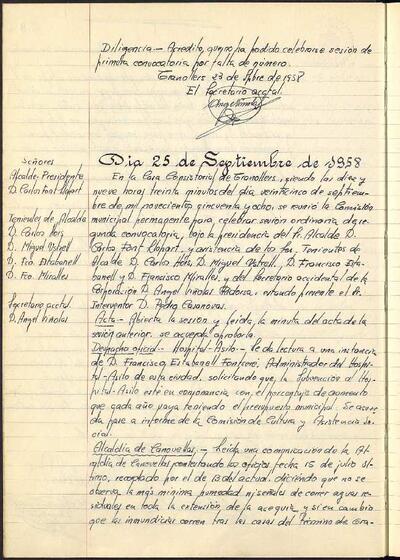 Diligencia.- Acredito, que no ha podido celebrarse sesión de
primera convocatoria por falta de número.
Granollers 23 de Stbre de 1958
El Secretario acctal
Señores
Alcalde-Presidente
D. Carlos Font Llopart
Tenientes de Alcalde
D. Carlos
D. Miguel
D. Fco. Estabanell
D. Fco. Miralles
Secretario acctal
D. Angel Viñolas
Dia 25 de Septiembre de 1958
En la Casa Consistorial de Granollers, siendo las diez y
nueve horas treinta minutos del día veinticinco de septiem-
bre de mil novecientos cincuenta y ocho, se reunió la Comisión
municipal permanente para celebrar sesión ordinaria de se-
gunda convocatoria, bajo la presidencia del Sr. Alcalde D.
Carlos Font Llopart, y asistencia de los Srs. Tenientes de
Alcalde D. Carlos D. Miguel D. Francisco Esta-
banell y D. Francisco Miralles, y del Secretario accidental de la
Corporación D. Angel Viñolas estando presente el Sr.
Interventor D. Pedro Casanovas.
Acta - Abierta la sesión y leída, la minuta del acta de la
sesión anterior, se acuerda aprobarla.
Despacho oficial - Hospital-Asilo - Se da lectura a una instancia
de D. Francisco Estabanell Administrador del Hospi-
tal-Asilo de esta ciudad, solicitando que, la Subvención al Hos-
pital-Asilo esté en consonancia con el porcentaje de aumento
que cada año vaya teniendo el presupuesto municipal. Se acuer-
da pase a informe de la Comisión de Cultura y Asistencia So-
cial.
Alcaldía de Canovellas.- Leída una comunicación de la Al-
caldía de Canovellas contestando los oficios fecha 15 de julio úl-
timo, recordado por el de 13 del actual, diciendo que no se
observa la más mínima humedad ni señales de correr aguas re-
siduales en toda la extensión de la acequia y sí en cambio
que las inmundicias corren tras las casas del término de Gra-